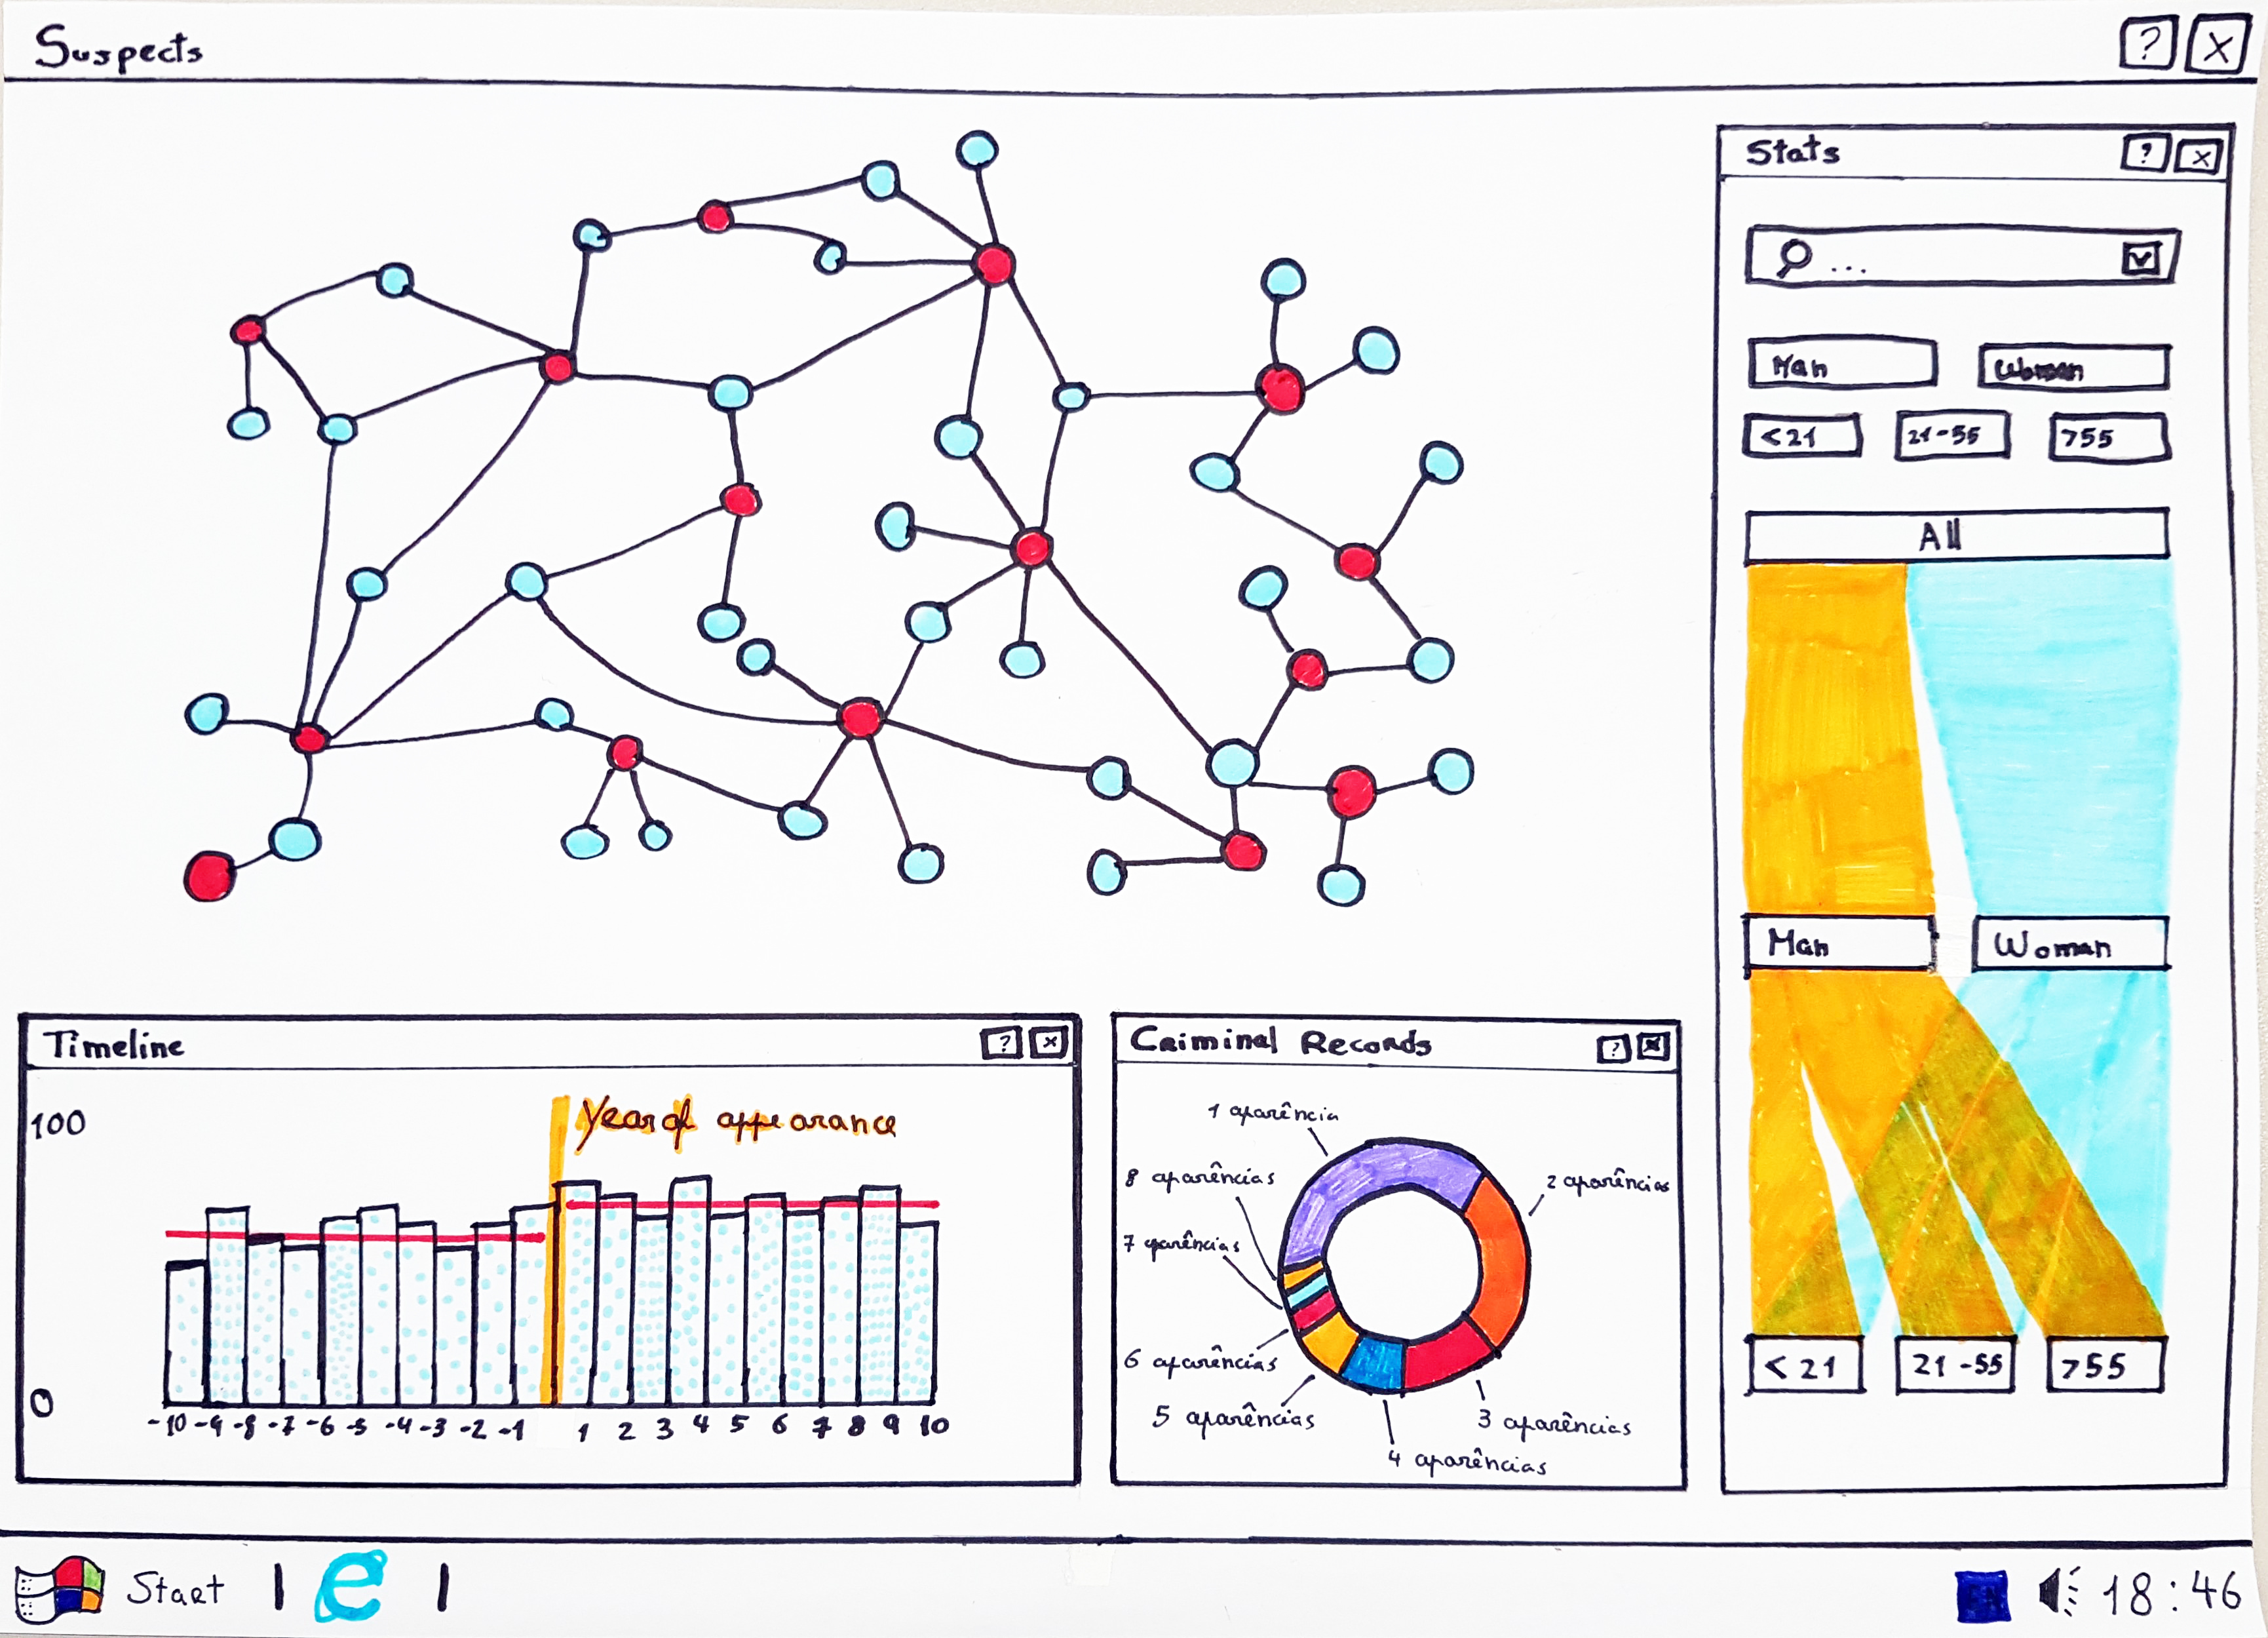 Suspects
? X
Stats
? X
...
Man Woman
<21 21-55 >55
All
Man Woman
<21 21-55 >55
Timeline
? X
100
Year of appearance
0
-10 -9 -8 -7 -6 -5 -4 -3 -2 -1 1 2 3 4 5 6 7 8 9 10
Criminal Records
? X
1 aparência
2 aparências
8 aparências
7 aparências
6 aparências
5 aparências
3 aparências
4 aparências
Start | e |
18:46